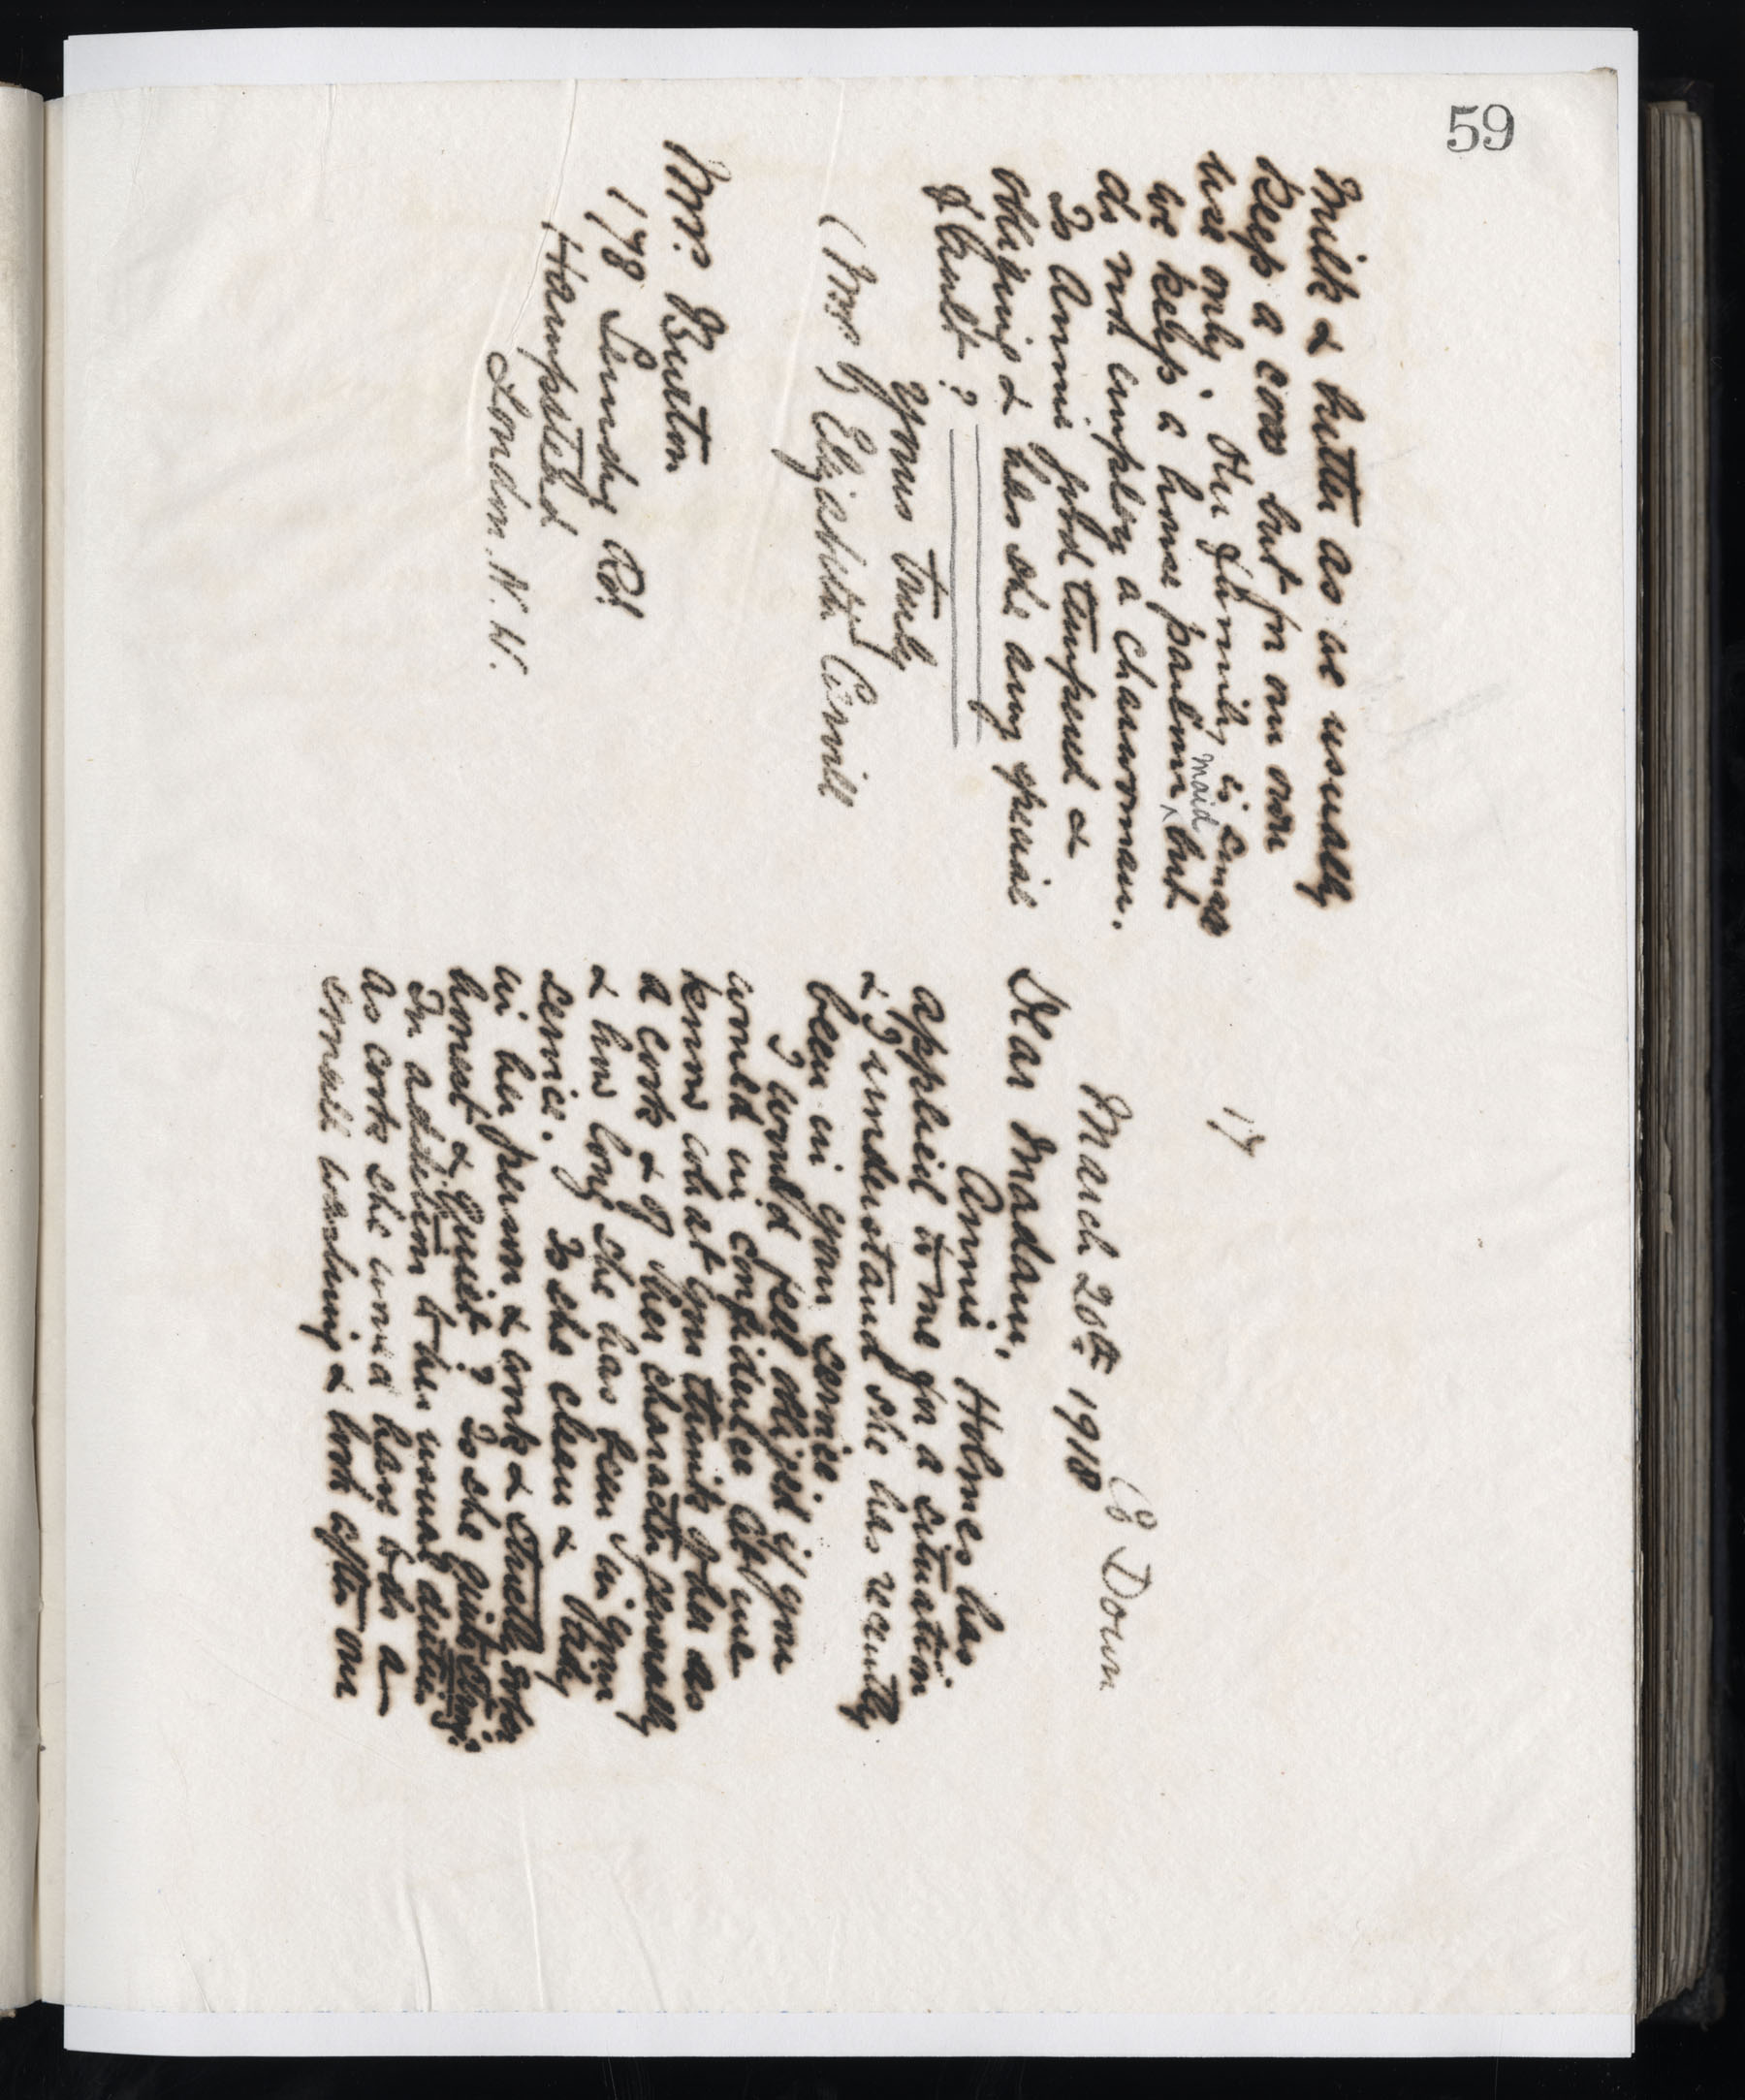 59
Milk & butter as we usually
keep a cow but for our own
use only. Our family is small
maid
we keep a house parlour ^ but
do not employ a charwoman.
Is Annie good tempered &
obliging & has she any special
fault?
Yours truly
(Mrs) Elizabeth Corvill
Mrs. Burton
178 Rd
Hampstead
London. N.W.
17
Co Down
March 20th 1918
Dear Madam,
Annie Holmes has
applied to me for a situation
& I understand she has recently
been in your service.
I would feel obliged if you
would in confidence let me
know what you think of her as
a cook & of her character generally
& how long she has been in your
service. Is she clean & tidy
in her person & work & strictly sober
honest & quiet? Is she quite strong.
In addition to her usual duties
as cook she would have to do a
small washing & look after our